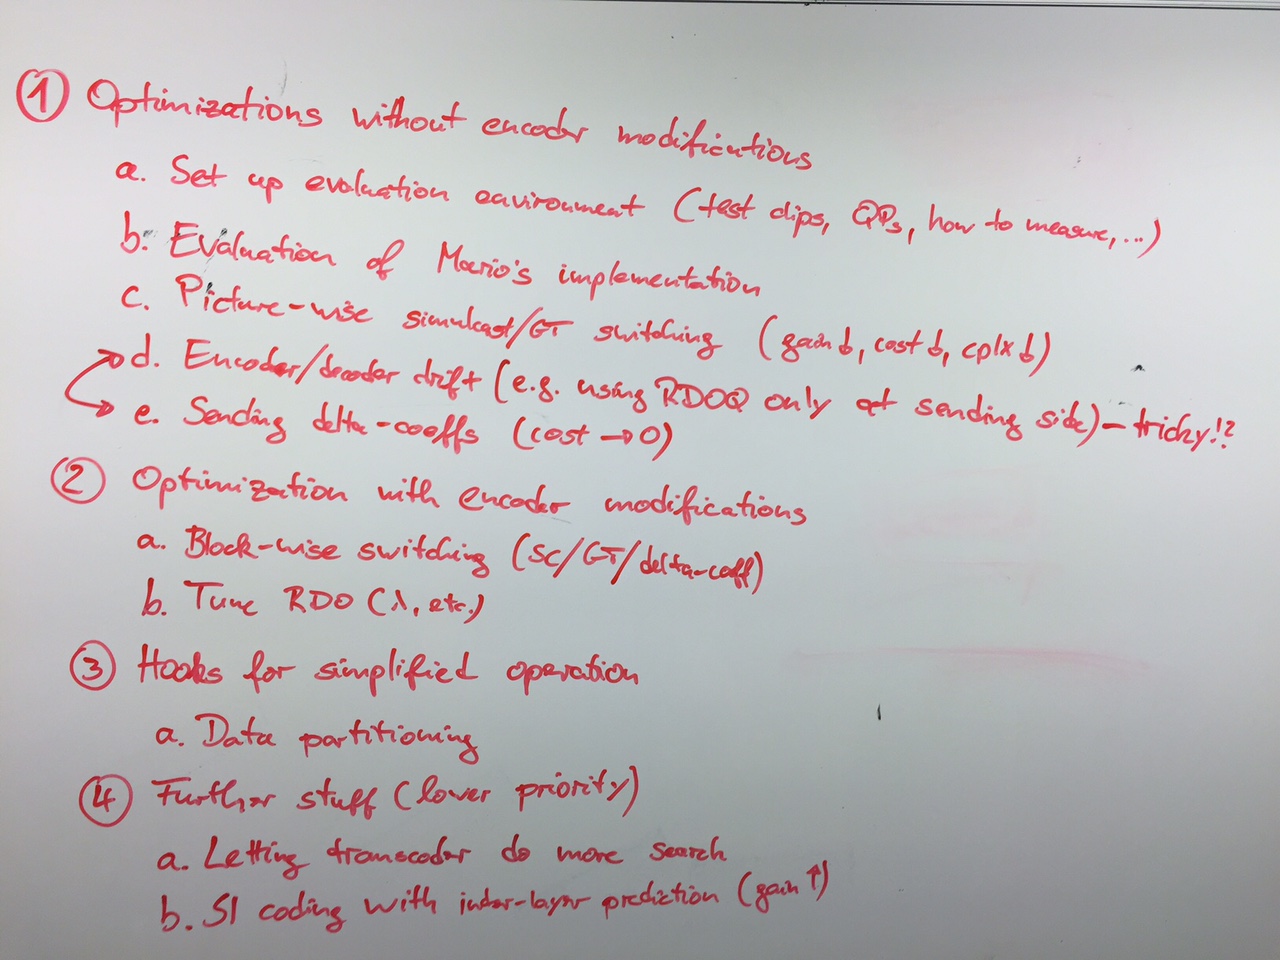 ① Optimizations without encoder modifications
a. Set up evaluation environment (test clips, QPs, how to measure, ...)
b. Evaluation of Mario's implementation
c. Picture-wise simulcast/GT switching (gain ↓, cost ↓, cplx ↓)
d. Encoder/decoder drift (e.g. using RDOQ only at sending side) – tricky!?
e. Sending delta-coeffs (cost → 0)
② Optimization with encoder modifications
a. Block-wise switching (SC/GT/delta-coeff)
b. Tune RDO (λ, etc.)
③ Hooks for simplified operation
a. Data partitioning
④ Further stuff (lower priority)
a. Letting transcoder do more search
b. SI coding with inter-layer prediction (gain ↑)